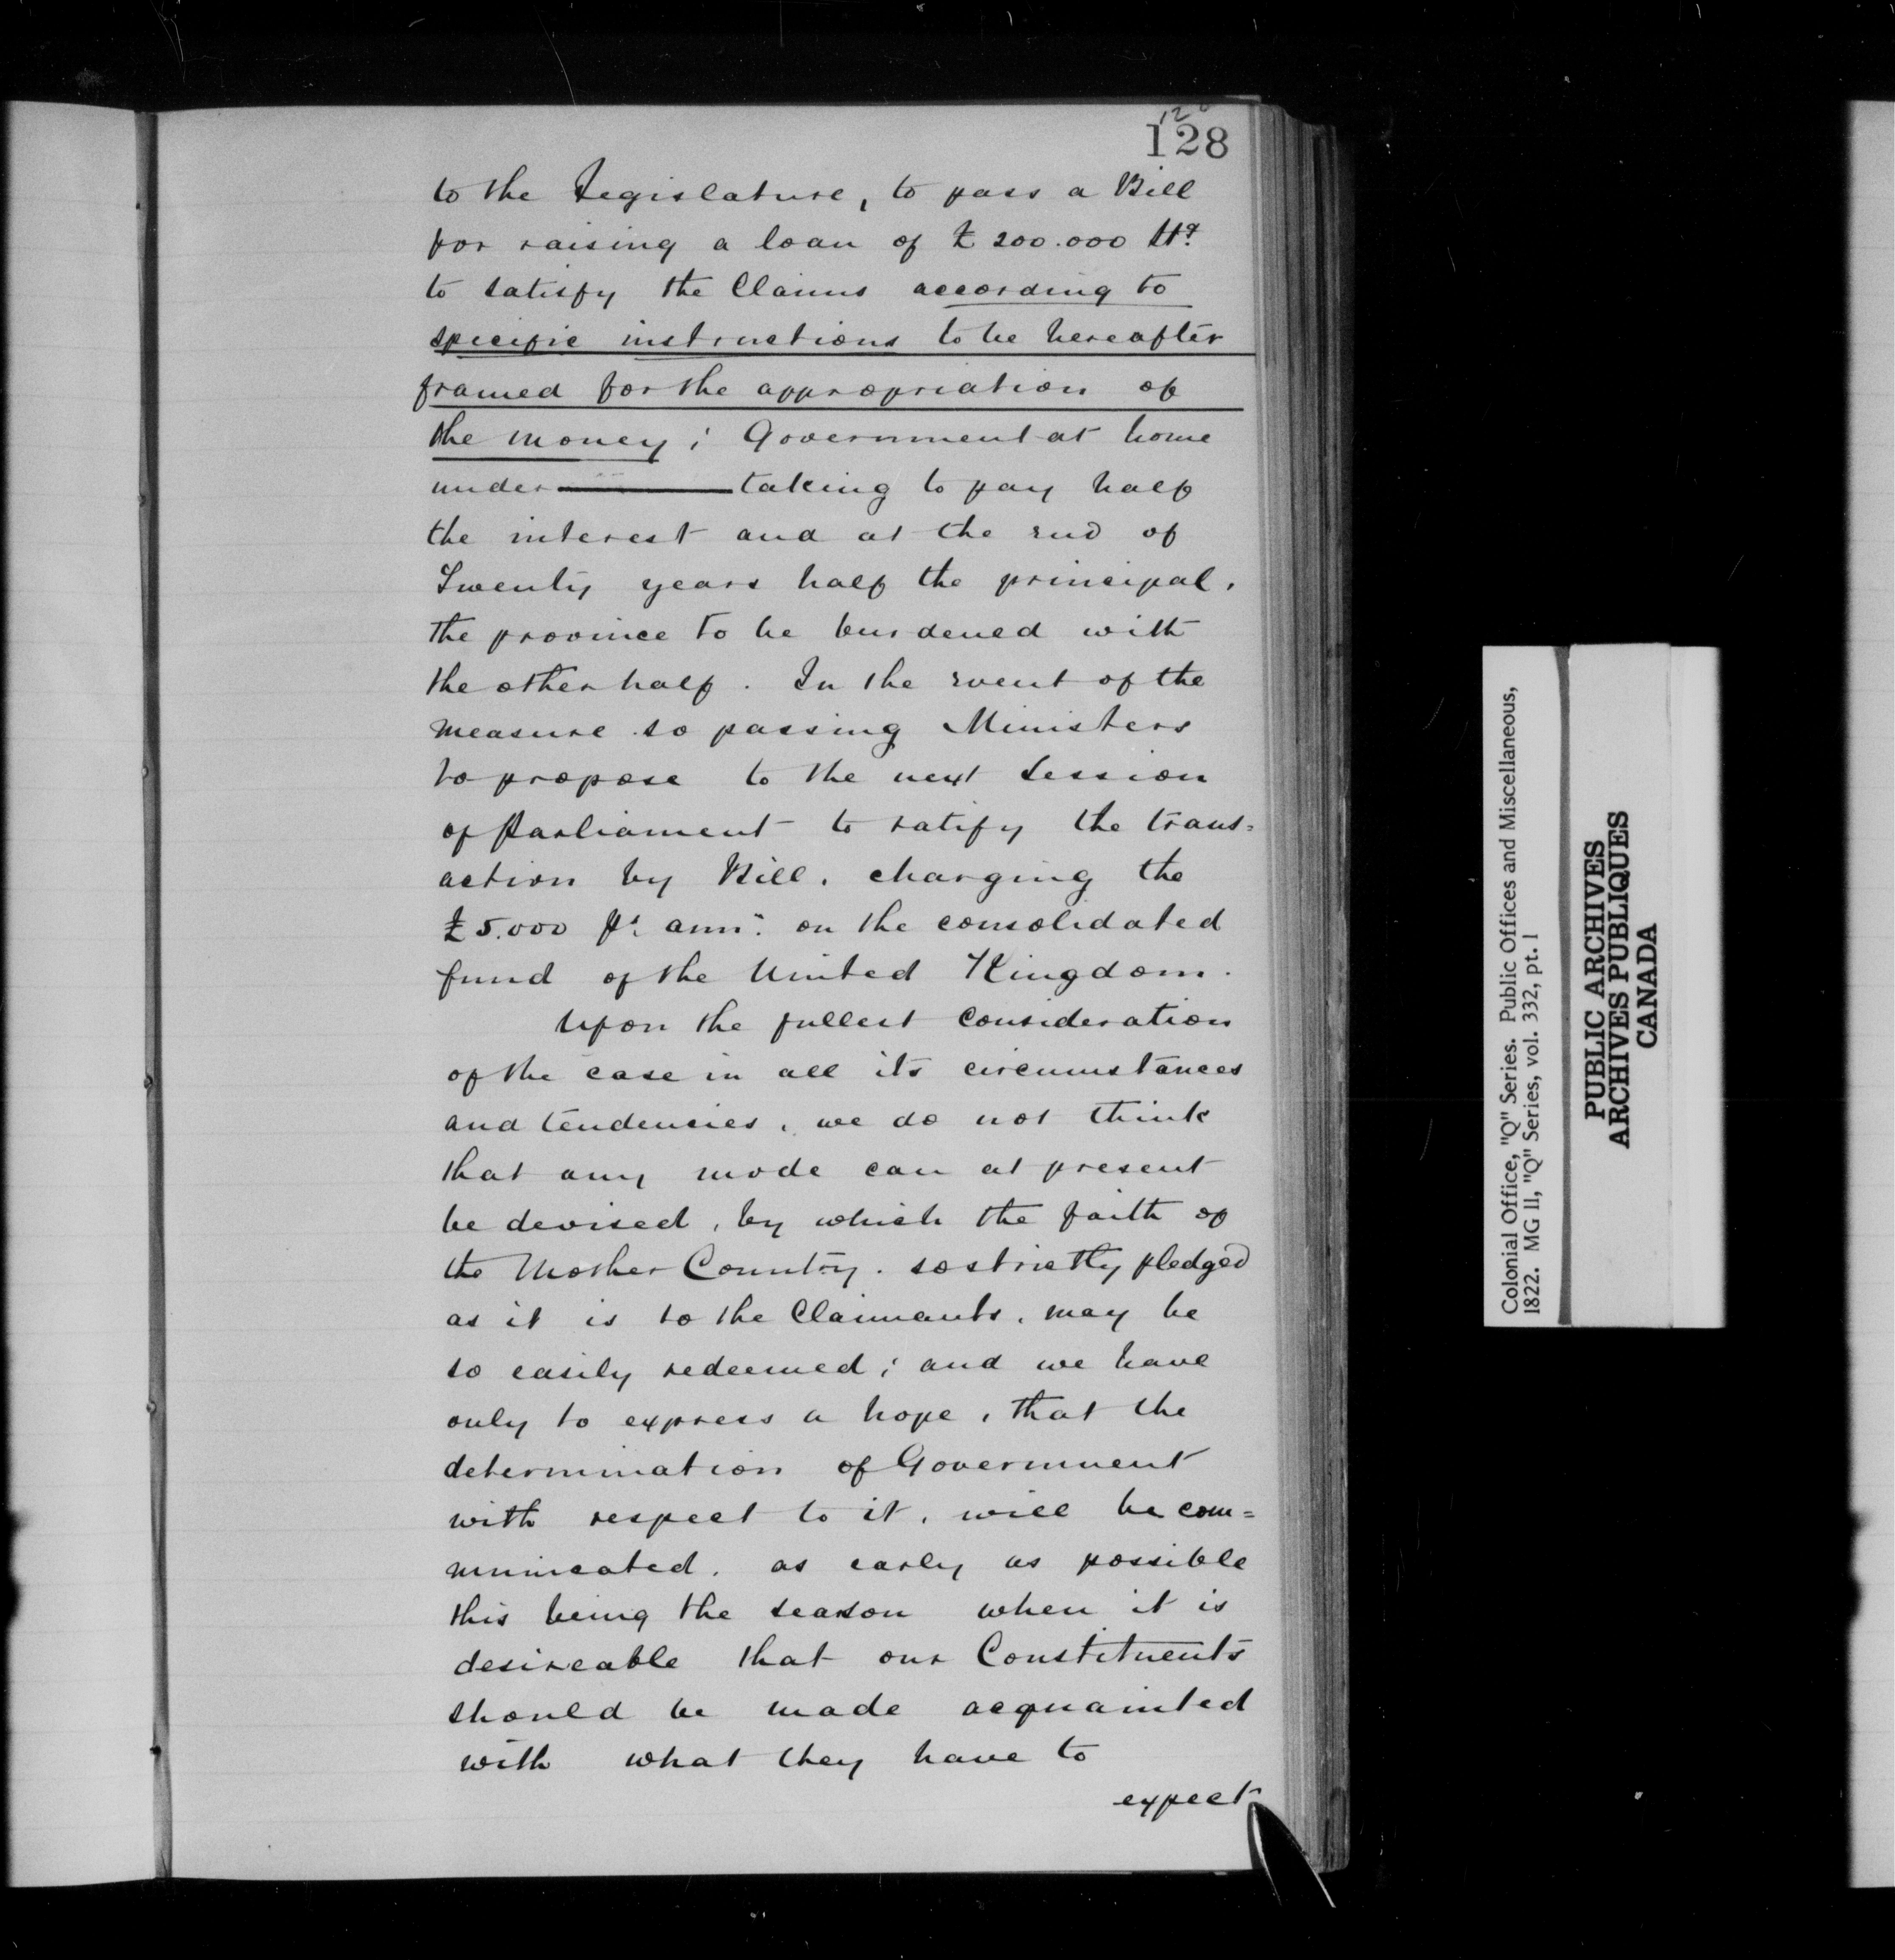 128
to the Legislature, to pass a Bill
for raising a loan of £200.000 Stg
to satisfy the Claims according to
specific instructions to be hereafter
framed for the appropriation of
the money; Government at home
under———taking to pay half
the interest and at the end of
Twenty years half the principal,
the province to be burdened with
the other half. In the event of the
measure so passing Ministers
to propose to the next Session
of Parliament to ratify the trans=
action by Bill, charging the
£5.000 pr ann: on the consolidated
fund of the United Kingdom.
Upon the fullest consideration
of the case in all its circumstances
and tendencies, we do not think
that any mode can at present
be devised, by which the faith of
the Mother Country. so strictly pledged
as it is to the Claimants, may be
so easily redeemed; and we have
only to express a hope, that the
determination of Government
with respect to it, will be com=
municated. as early as possible
this being the season when it is
desireable that our Constituents
should be made acquainted
with what they have to
expect
Colonial Office, "Q" Series. Public Offices and Miscellaneous,
1822. MG 11, "Q" Series, vol. 332, pt. 1
PUBLIC ARCHIVES
ARCHIVES PUBLIQUES
CANADA